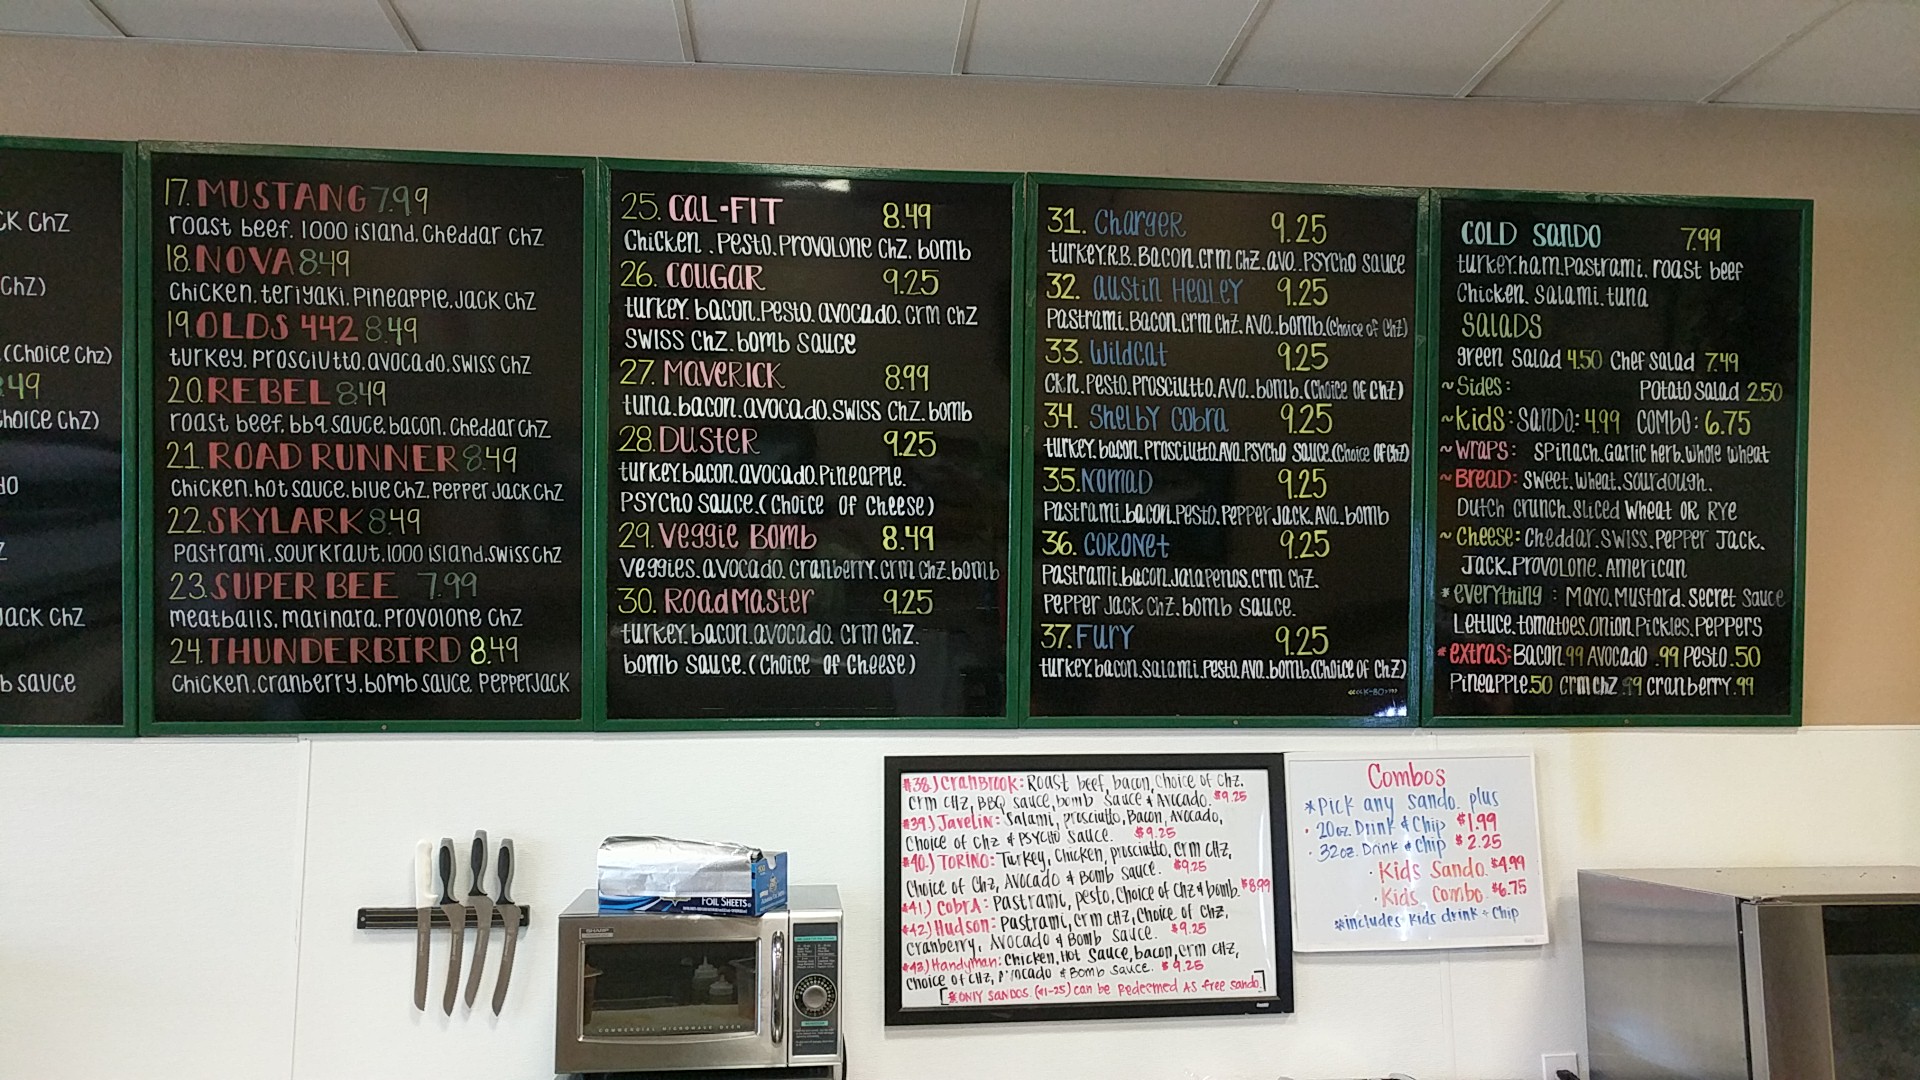 CK ChZ
ChZ)
.(Choice Chz)
49
hoice ChZ)
do
Jack ChZ
b sauce
17. MUSTANG 7.99
roast beef. 1000 island. Cheddar ChZ
18. NOVA 8.49
Chicken. teriyaki. Pineapple. Jack ChZ
19. OLDS 442 8.49
turkey. Prosciutto. avocado. swiss ChZ
20. REBEL 8.49
roast beef. bbq sauce. bacon. cheddar ChZ
21. ROAD RUNNER 8.49
Chicken. hot sauce. blue Chz. Pepper Jack ChZ
22. SKYLARK 8.49
Pastrami. sourkraut. 1000 island. swiss ChZ
23. SUPER BEE 7.99
meatballs. marinara. Provolone ChZ
24. THUNDERBIRD 8.49
Chicken. cranberry. bomb sauce. PepperJack
25. CAL-FIT 8.49
Chicken . Pesto. Provolone ChZ. bomb
26. COUGAR 9.25
turkey. bacon. Pesto. avocado. crm ChZ
swiss ChZ. bomb sauce
27. Maverick 8.99
tuna. bacon. avocado. swiss ChZ. bomb
28. Duster 9.25
turkey. bacon. avocado. Pineapple.
Psycho sauce. (Choice of Cheese)
29. Veggie Bomb 8.49
Veggies. avocado. cranberry. crm ChZ. bomb
30. ROADMASTER 9.25
turkey. bacon. avocado. crm ChZ.
bomb sauce. (Choice of Cheese)
31. Charger 9.25
turkey. R.B.. Bacon. crm ChZ. avo.. Psycho sauce
32. Austin Healey 9.25
Pastrami. Bacon. crm Chz. Avo.. bomb. (Choice of ChZ)
33. Wildcat 9.25
Ckn. Pesto. Prosciutto. Avo.. bomb. (Choice of ChZ)
34. Shelby Cobra 9.25
turkey. bacon. Prosciutto. Avo. Psycho Sauce. (Choice of ChZ)
35. Nomad 9.25
Pastrami. bacon. Pesto. Pepper Jack. Avo.. bomb
36. Coronet 9.25
Pastrami. bacon. Jalapenos. crm ChZ.
Pepper Jack ChZ. bomb sauce.
37. Fury 9.25
turkey. bacon. Salami. Pesto. Avo. bomb. (Choice of ChZ)
COLD Sando 7.99
turkey. ham. Pastrami. roast beef
Chicken. Salami. tuna
SALADS
green salad 4.50 Chef salad 7.49
~Sides: Potato Salad 2.50
~Kids: Sando: 4.99 Combo: 6.75
~Wraps: Spinach. Garlic herb. whole wheat
~Bread: Sweet. wheat. Sourdough.
Dutch crunch. Sliced wheat OR Rye
~Cheese: Cheddar. Swiss. Pepper Jack.
Jack. Provolone. American
*everything : Mayo. Mustard. Secret Sauce
Lettuce. tomatoes. Onion. Pickles. Peppers
*extras: Bacon .99 Avocado .99 Pesto .50
Pineapple .50 Crm ChZ .99 Cranberry .99
#38.) Cranbrook: Roast beef, bacon, choice of chz.
crm cHz, BBQ sauce, bomb sauce & Avocado. $9.25
#39.) Javelin: Salami, prosciutto, Bacon, Avocado,
Choice of Chz & Psycho Sauce. $9.25
#40.) TORINO: Turkey, Chicken, prosciutto, crm cHz,
Choice of Chz, Avocado & Bomb sauce. $9.25
#41.) Cobra: Pastrami, pesto, Choice of Chz & bomb. $8.99
#42.) Hudson: Pastrami, crm cHz, Choice of Chz,
cranberry, Avocado & Bomb sauce. $9.25
#43.) Handyman: Chicken, Hot Sauce, bacon, crm cHz,
Choice of cHz, Avocado & Bomb sauce. $9.25
[*ONLY SANDOS (#1-25) can be Redeemed AS free sando.]
Combos
*Pick any sando. plus
· 20oz. Drink & Chip $1.99
· 32oz. Drink & Chip $2.25
· Kids Sando $4.99
· Kids Combo $6.75
*includes kids drink & Chip
FOIL SHEETS
SHARP
COMMERCIAL MICROWAVE OVEN